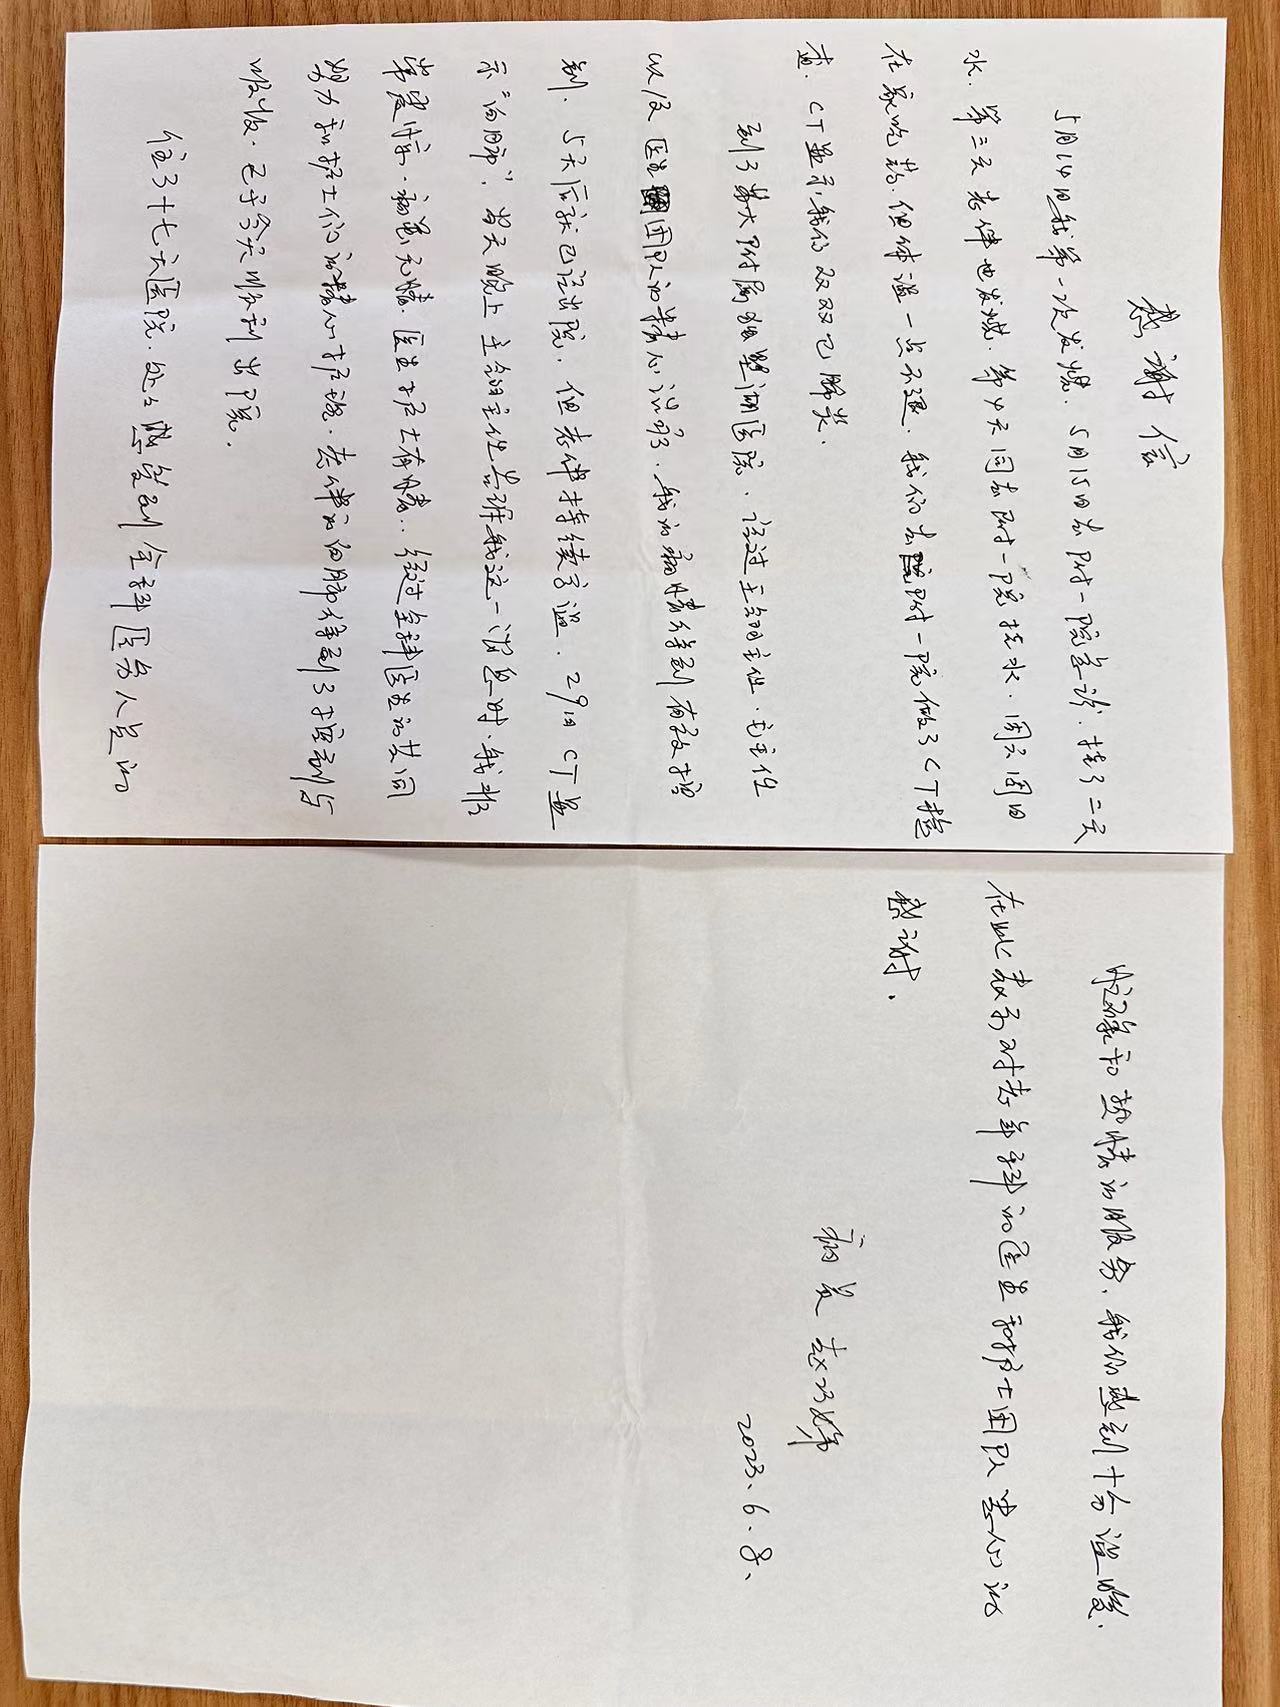 感谢信
5月14日我第一次发烧. 5月15日去附一院急诊. 挂了二天
水. 第二天老伴也发烧. 第4天同去附一院挂水. 周六周日
在家吃药. 但体温一点不退. 我们去附一院做了CT检
查. CT显示, 我们双双已肺炎.
到了苏大附属独墅湖医院. 经过主任. 主任
以及医生团队的精心诊治. 我的病情得到有效控
制. 5天后就已经出院. 但老伴持续高温. 29日CT显
示"白肺". 当天晚上主任告诉我这一消息时. 我非
常震惊. 病毒无情. 医生护士有情.. 经过全科医生的共同
努力和护士们的精心护理. 老伴的白肺得到了控制与
吸收. 已于今天顺利出院.
住了十七天医院. 处处感受到全科医务人员的
和热情的服务. 我们感到十分温暖.
在此表示对老年科的医生和护士团队衷心的
感谢.
病员 赵
2023.6.8.